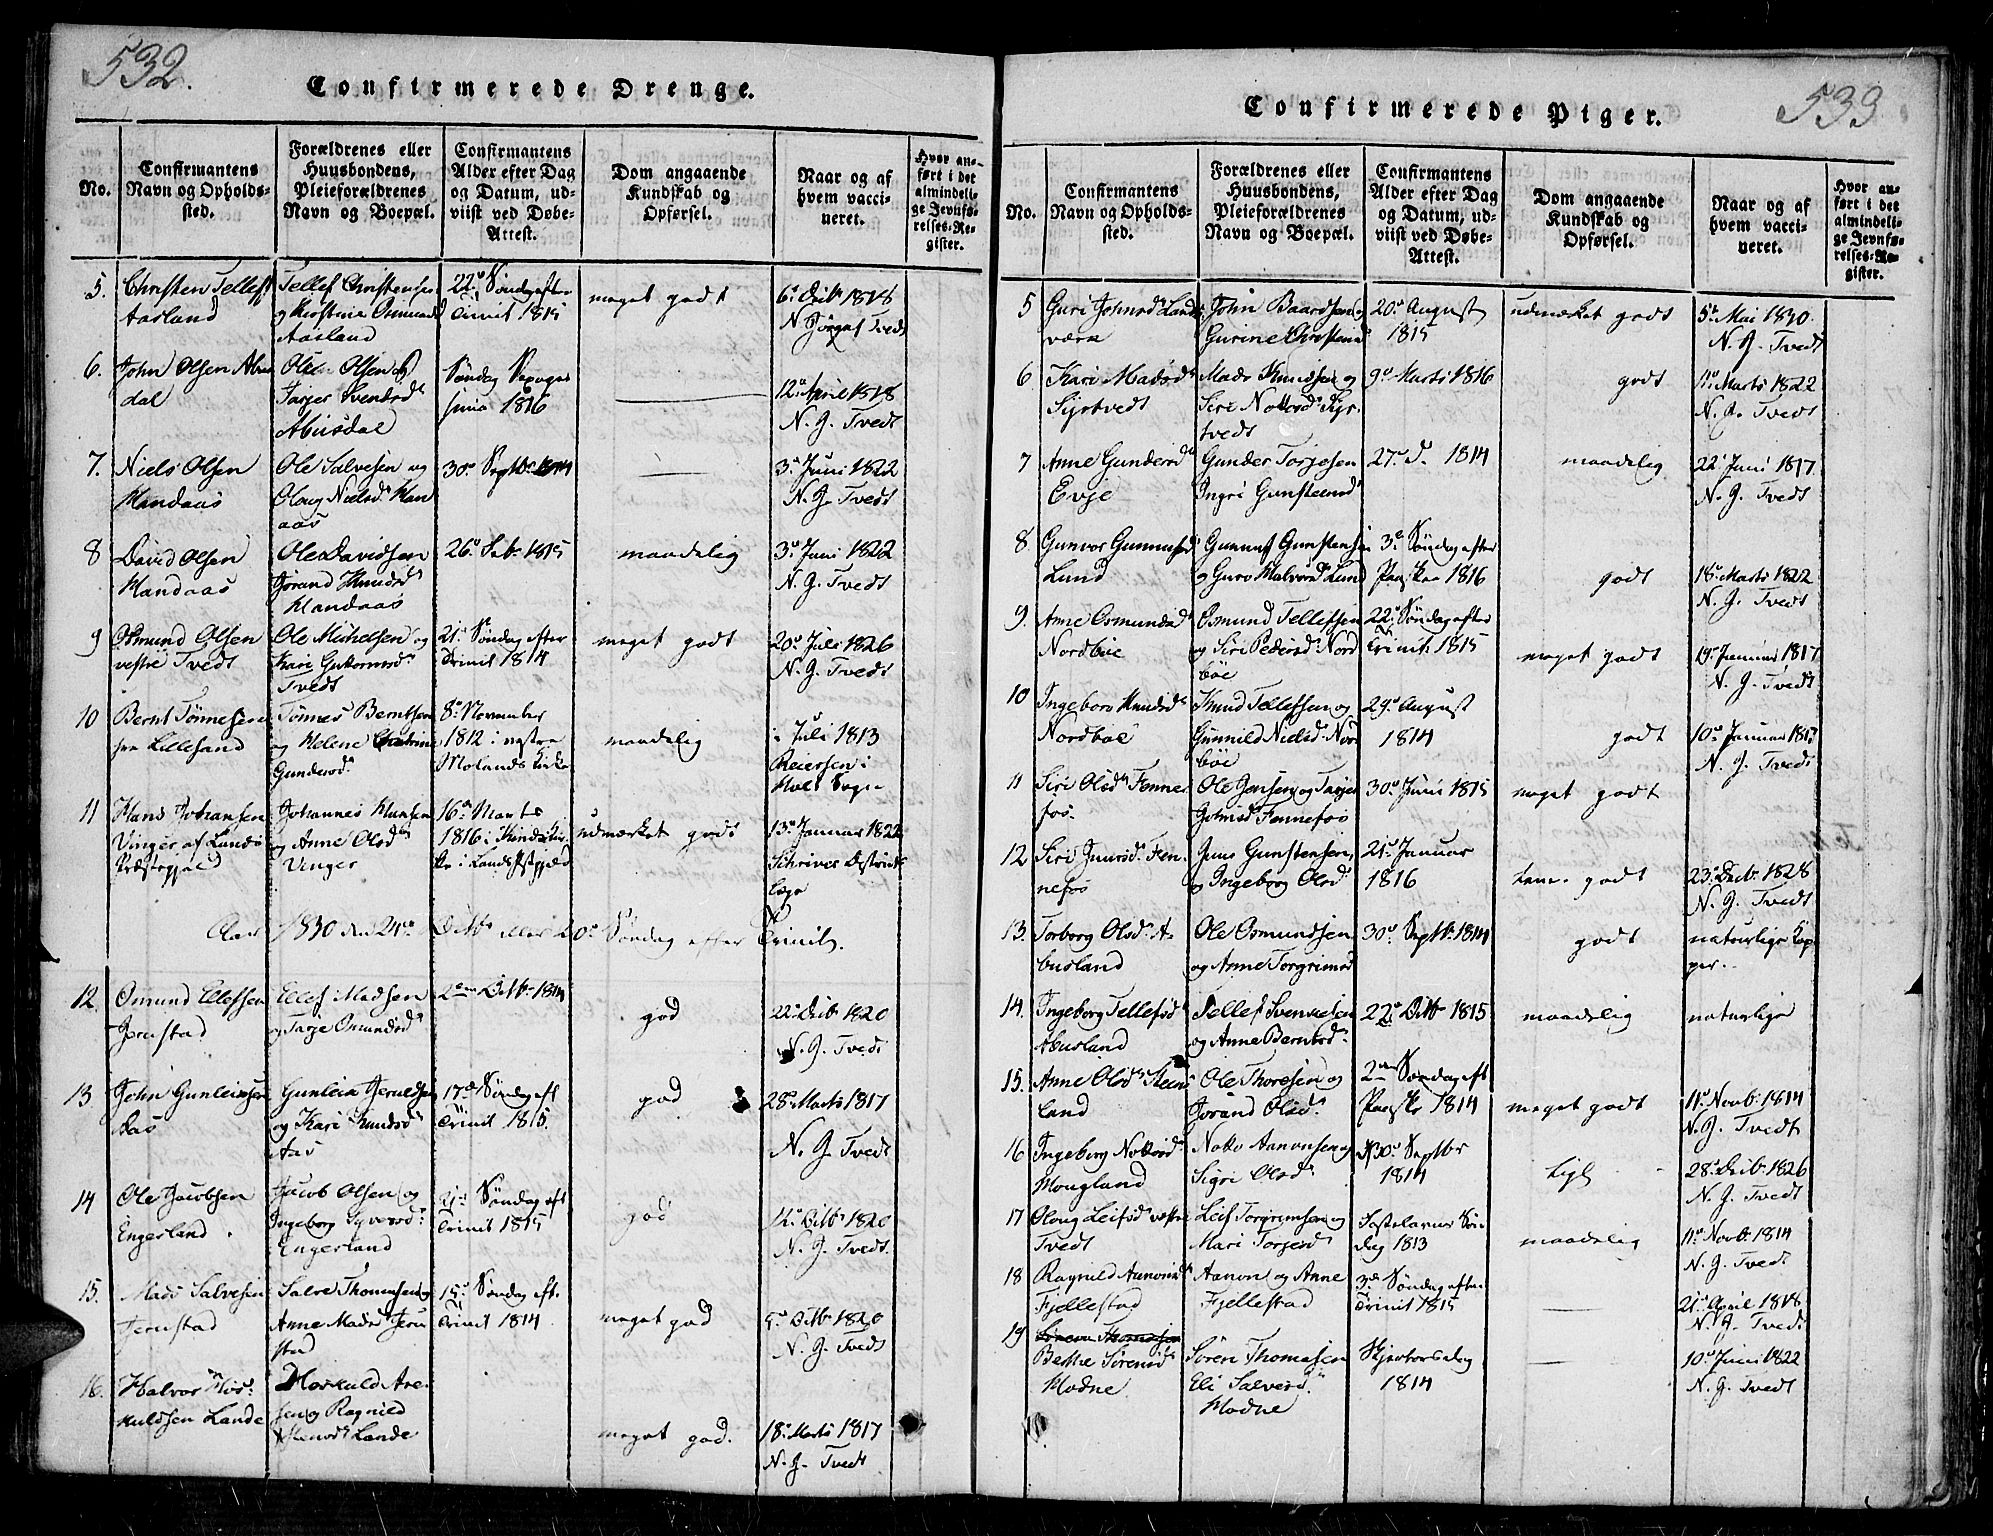 532.
Confirmerede Drenge.
No.
Confirmantens
Navn og Opholds-
sted.
Forældrenes eller
Huusbondens,
Pleieforældrenes
Navn og Boepæl.
Confirmantens
Alder efter Dag
og Datum, ud-
viist ved Døbe-
Attest.
Dom angaaende
Kundskab og
Opførsel.
Naar og af
hvem vacci-
neret.
Hvor an-
ført i det
almindeli-
ge Jevnfø-
relses-Re-
gister.
5.
Christen Tellefs
Aasland
Tellef Christensen
og Kirstine Osmunds
Aasland
22de Søndag efter
Trinit 1815
meget godt
6te Decbr 1818
N. Jørgs Tvedt
6.
John Olsen Abus
dal
Ole Olsen og
Tarjer Svendsd
Abusdal
Søndag Sexages
sima 1816
12te April 1818
N. G. Tvedt
7.
Niels Olsen
Mandaas
Ole Salvesen og
Oloug Nielsd Man
aas
30te Septbr 1814
3de Juni 1822
N. G. Tvedt
8
David Olsen
Mandaas
Ole Davidsen
Jorand Knudsd
Mandaas
26de Feb 1815
maadelig
3de Juni 1822
N. G. Tvedt
9
Osmund Olsen
vestre Tvedt
Ole Michelsen og
Kari Guttormsd
Tvedt
21de Søndag efter
Trinit 1814
meget godt
20de Juli 1826
N. G. Tvedt
10
Bernt Tønnesen
fra Lillesand
Tønnes Berntsen
og Helene Cathrine
Gundersd
8de November
1812 i vestre
Molands Kirke
maadelig
i Juli 1813
Reiersen i
Hols Sogn
11
Hans Johansen
Vinger af Lands
Præstegjeld
Johannes Hansen
og Anne Olsd
Vinger
16de Marts
1816 i
ke i Lands Pstgjeld
udmærket godt
13de Januar 1822
Schriver Districts
læge
Aar 1830 den 24de Octbr eller 20de Søndag efter Trinit.
12.
Osmund Ellefsen
Jernstad
Ellef Madsen
og Tarje Osmundsd
2den Octbr 1814
god
22de Decb 1820
N. G. Tvedt
13.
John Gunleiksen
Aas
Gunleik Jeruldsen
og Kari Knudsd
Aas
17de Søndag eft
Trinit 1815.
god
28de Marts 1817
N. G. Tvedt
14
Ole Jacobsen
Engerland
Jacob Olsen og
Ingeborg Syversd
Engerland
21de Søndag eft
Trinit 1815
god
14de Octbr 1820
N. G. Tvedt
15.
Mads Salvesen
Jernstad
Salve Thomesen og
Anne Madsd Jern
stad
15de Søndag eft.
Trinit 1814.
meget god
9de Octbr 1820
N. G. Tvedt
16.
Halvor Hos-
kuldsen Lande
Hoskuld Are-
sen og Ragnild
Lande
meget god.
18de Marts 1817
N. G. Tvedt
533.
Confirmerede Piger.
No.
Confirmantens
Navn og Opholds-
sted.
Forældrenes eller
Huusbondens,
Pleieforældrenes
Navn og Boepæl.
Confirmantens
Alder efter Dag
og Datum, ud-
viist ved Døbe-
Attest.
Dom angaaende
Kundskab og
Opførsel.
Naar og af
hvem vacci-
neret.
Hvor an-
ført i det
almindeli-
ge Jevnfø-
relses-Re-
gister.
5
Guri Johnsd Lands
værk
John Baardsen og
Gurine Christine
20de August
1815
udmærket godt
5te Mai 1830.
N. G. Tvedt
6
Kari Madsd
Syrtvedt
Mads Knudsen og
Siri Nottosd Syr-
tvedt
9de Marts 1816
godt
11te Marts 1822
N. G. Tvedt
7
Anne Gundersd
Evje
Gunder Torjesen
Ingri Gunsteensd
27de D. 1814
maadelig
22de Juni 1817
N. G. Tvedt
8
Gunvor Gunnufsd
Lund
Gunnuf Gunstensen
og Guro Halvorsd Lund
3de Søndag efter
Paaske 1816
godt
18de Marts 1822
N. G. Tvedt
9.
Anne Osmundsd
Nordbøe
Osmund Tellefsen
og Siri Pedersd Nord
bøe
22de Søndag efter
Trinit. 1815
meget godt
19de Januar 1817
N. G. Tvedt
10
Ingeborg Knudsd
Nordbøe
Knud Tellefsen og
Gunnild Nielsd Nord
bøe
29de August
1814
godt
10de Januar 1817
N. G. Tvedt
11
Siri Olsd Fenne
fos.
Ole Jensen og Tarjer
Johnsd Fennefos
30te Juni 1815
meget godt
12
Siri Juursd Fen-
nefos
Juus Gunstensen,
og Ingeborg Olsd
21de Januar
1816
godt
23de Decb 1828
N. G. Tvedt
13.
Torborg Olsd A-
busland
Ole Osmundsen
og Anne Torgrimsd
30te Septbr 1814
godt
naturlige Kop
per.
14.
Ingeborg Tellefsd
Abusland
Tellef Svennesen
og Anne Berntsd
22de Octbr 1815
maadelig
naturlige
15.
Anne Olsd Steins
land
Ole Thoresen og
Jorand Olsd
2den Søndag eft
Paaske 1814
meget godt
11te Novb 1814
N. G. Tvedt
16
Ingeborg Nottosd
Mougland
Notto Aanonsen og
Sigri Olsd
30te Septbr
1814
28de Decb 1826
N. G. Tvedt
17
Oloug Leifsd vestre
Tvedt
Leif Torgrimsen og
Mari Torjersd
Fastelavns Søn
dag 1813
maadelig
11te Novb 1814
N. G. Tvedt
18
Ragnild Aanonsd
Fjellestad
Aanon og Anne
Fjellestad
3de Søndag efter
Trinit 1815
21de April 1818
N. G. Tvedt
19
Sørren Thomasen
Berthe Sørensd
Modne
Søren Thomasen
Eli Salvesd
Modne
Skjærtorsdag
1814
10de Juni 1822
N. G. Tvedt